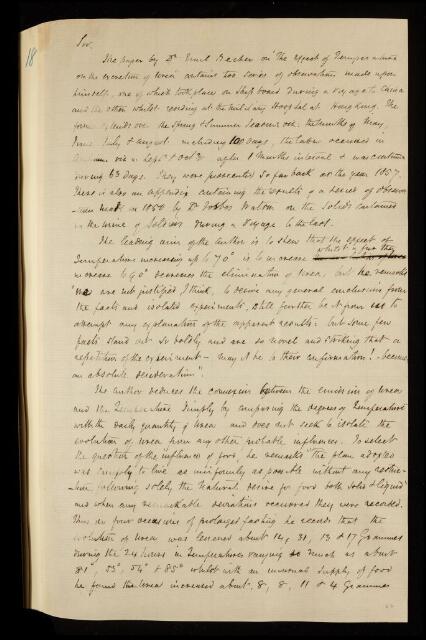 18
Sir,
The paper by Dr Emil Becher on "The effect of Temperature
on the excretion of Urea" contains two series of observations made upon
himself, one of which took place on Ship board during a voyage to China
and the other whilst residing at the Military Hospital at Hong Kong. The
former extends over the Spring & Summer Seasons viz: the months of May,
June July & August including 100 days, the latter occurred in
Autumn viz in Sept & Octr after 1 Months interval & was continued
during 63 days. They were prosecuted so far back as the year 1857.
There is also an appendix containing the results of a series of observa-
-tions made in 1858 by Dr Forbes Watson on the Solids contained
in the urine of Soldiers during a Voyage to the East.
The leading aim of the Author is to show that the effect of
Temperature increasing up to 70° is to increase whilst a further
increase to 90° decreases the elimination of Urea, but he remarks
"we are not justified, I think, to derive any general conclusion from
the facts and isolated experiments, still further be it from me to
attempt any explanation of the apparent results: but some few
facts stand out so boldly and are so novel and striking that a
repetition of the experiment - may it be in their confirmation! - becomes
an absolute desideratum".
The Author deduces the connexion between the emission of Urea
and the Temperature simply by comparing the degrees of Temperature
with the daily quantity of Urea and does not seek to isolate the
evolution of Urea from any other probable influences. To select
the question of the influence of food, he remarks "the plan adopted
was simply to live as uniformly as possible without any restric-
-tion, following solely the natural desire for food both solid & liquid"
and when any remarkable deviations occurred they were recorded.
Thus on four occasions of prolonged fasting he records that the
evolution of Urea was lessened about 14, 31, 13 & 17 Grammes
during the 24 hours in Temperatures varying so much as about
81°, 53°, 54° & 85° whilst with an unusual supply of food
he found the Urea increased about 8, 8, 11 & 4 Grammes